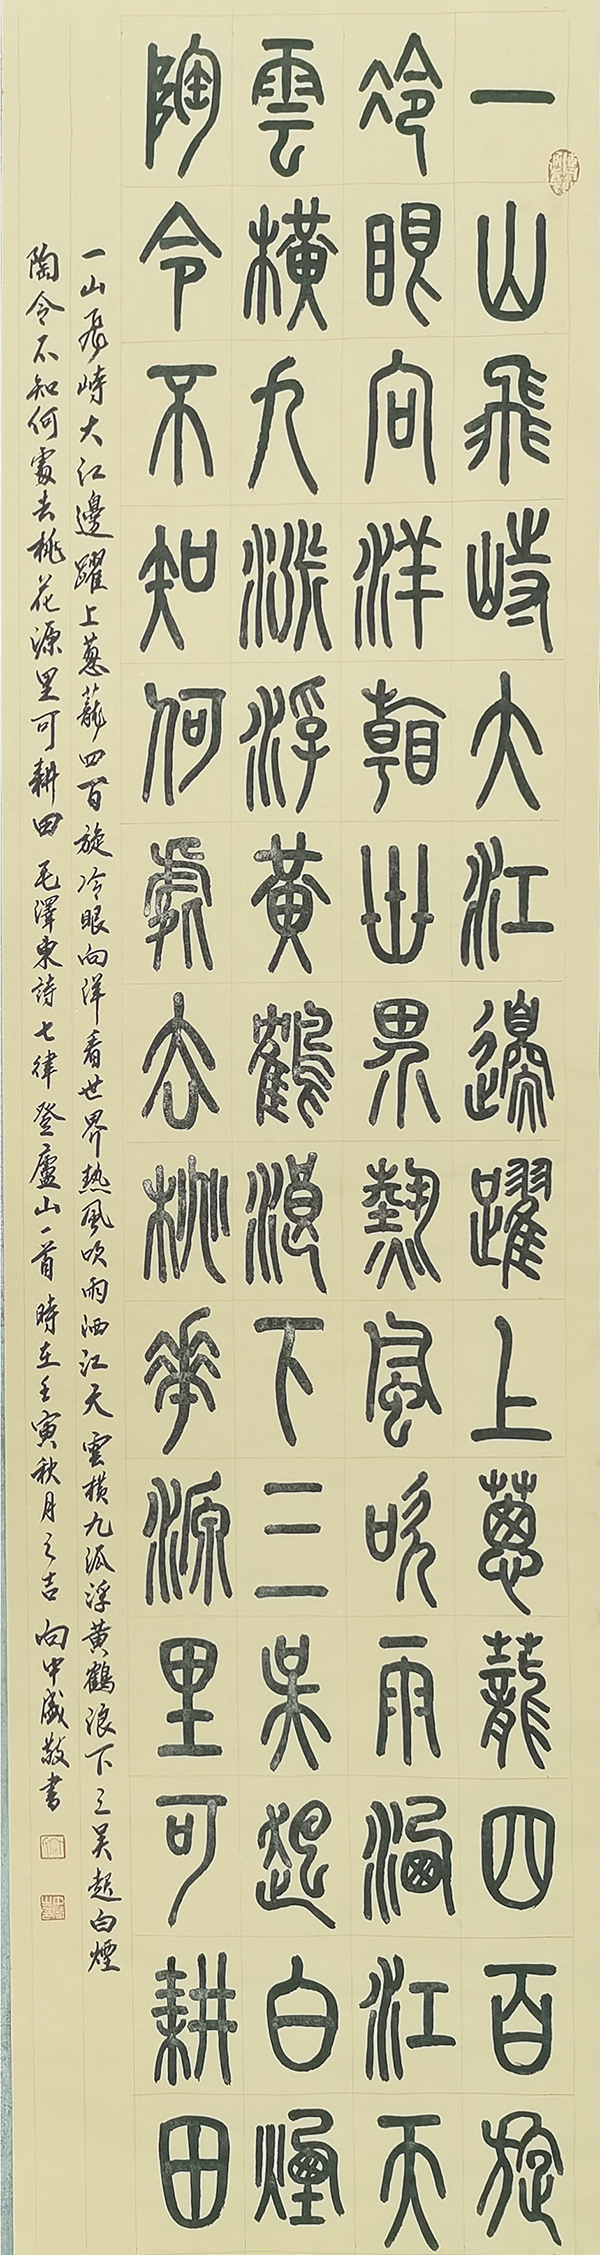 一山飛峙大江邊躍上蔥蘢四百旋
冷眼向洋看世界熱風吹雨洒江天
雲橫九派浮黃鶴浪下三吳起白煙
陶令不知何處去桃花源里可耕田
一山飛峙大江邊躍上蔥蘢四百旋冷眼向洋看世界熱風吹雨洒江天雲橫九派浮黃鶴浪下三吳起白煙
陶令不知何處去桃花源里可耕田毛澤東詩七律登廬山一首時在壬寅秋月之吉向中盛敬書